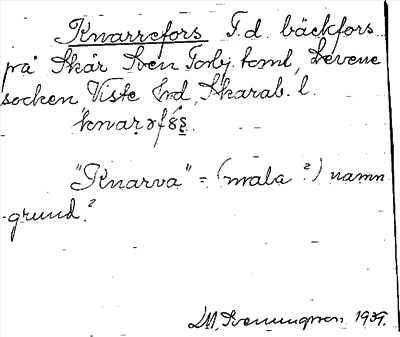 Knarrefors F.d. bäckfors
på Skår Sven Torbj. toml, Levene
socken, Viste hrd, Skarab. l.
"Knarva" = (mala?) namn
grund?
1939.